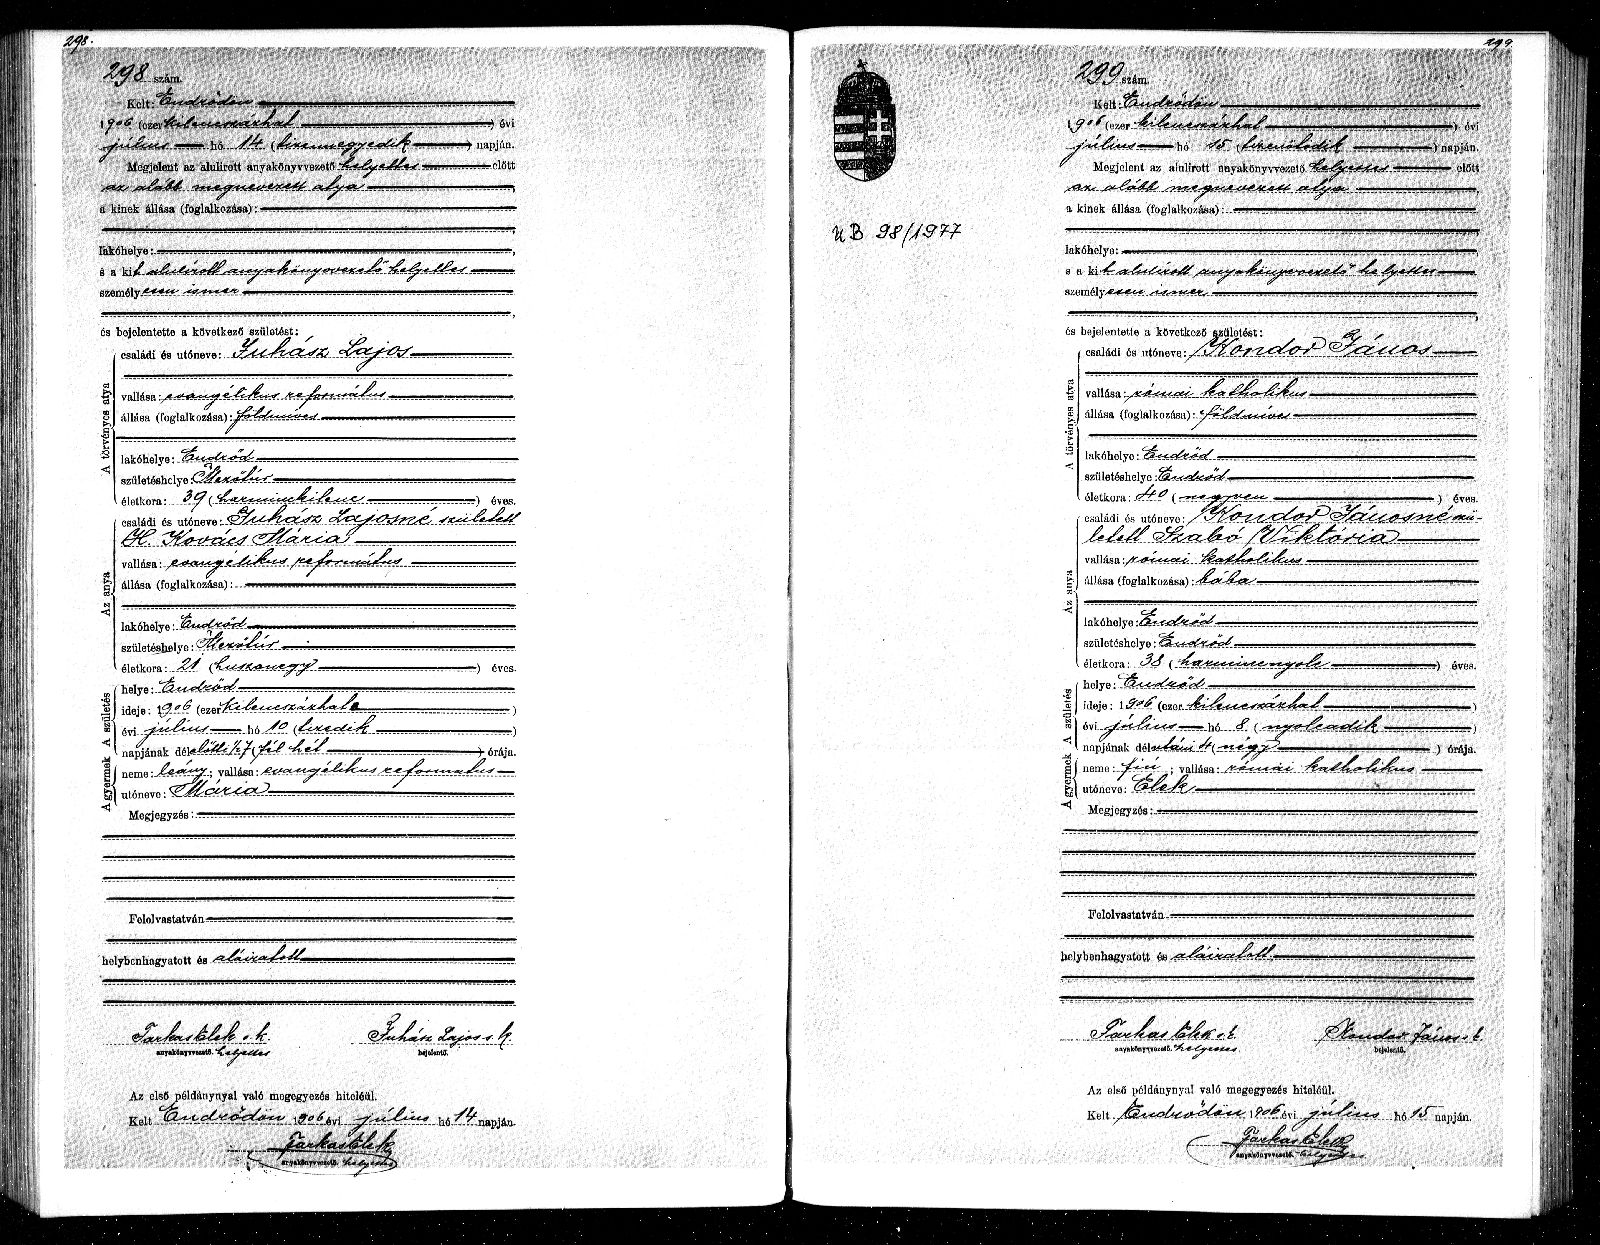 298.
298 szám.
Kelt: Endrődön
1906 (ezerkilencszázhat) évi
július hó 14 (tizennegyedik) napján.
Megjelent az alulirott anyakönyvvezető helyettes előtt
az alább megnevezett atya,
a kinek állása (foglalkozása):
lakóhelye:
s a kit alulírott anyakönyvvezető helyettes
személyesen ismer
és bejelentette a következő születést:
A törvényes atya
családi és utóneve: Juhász Lajos
vallása: evangélikus református
állása (foglalkozása): földmíves
lakóhelye: Endrőd
születéshelye: Mezőtúr
életkora: 39 (harminckilenc) éves.
Az anya
családi és utóneve: Juhász Lajosné született
H. Kovács Mária
vallása: evangélikus református
állása (foglalkozása):
lakóhelye: Endrőd
születéshelye: Mezőtúr
életkora: 21 (huszonegy) éves.
A születés
helye: Endrőd
ideje: 1906 (ezerkilencszázhat)
évi július hó 10 (tizedik)
napjának délelőtti ½7 (fél hét) órája.
A gyermek
neme: leány; vallása: evangélikus református
utóneve: Mária
Megjegyzés:
Felolvastatván
helybenhagyatott és aláiratott
Farkas Elek s. k. Juhász Lajos s. k.
anyakönyvvezető. helyettes bejelentő.
Az első példánynyal való megegyezés hiteléül.
Kelt Endrődön 1906 évi július hó 14 napján.
Farkas Elek
anyakönyvvezető. helyettes
299.
299 szám.
Kelt: Endrődön
1906 (ezer kilencszázhat) évi
július hó 15 (tizenötödik) napján.
Megjelent az alulirott anyakönyvvezető helyettes előtt
az alább megnevezett atya
a kinek állása (foglalkozása):
UB 98/1977
lakóhelye:
s a kit alulírott anyakönyvvezető helyettes
személyesen ismer
és bejelentette a következő születést:
A törvényes atya
családi és utóneve: Kondor János
vallása: római katholikus
állása (foglalkozása): földmíves
lakóhelye: Endrőd
születéshelye: Endrőd
életkora: 40 (negyven) éves.
Az anya
családi és utóneve: Kondor Jánosné szü-
letett Szabó Viktória
vallása: római katholikus
állása (foglalkozása): bába
lakóhelye: Endrőd
születéshelye: Endrőd
életkora: 38 (harmincnyolc) éves.
A születés
helye: Endrőd
ideje: 1906 (ezer kilencszázhat)
évi július hó 8 (nyolcadik)
napjának délutáni 4 (négy) órája.
A gyermek
neme: fiú; vallása: római katholikus
utóneve: Elek
Megjegyzés:
Felolvastatván
helybenhagyatott és aláiratott.
Farkas Elek s. k. Kondor János s. k.
anyakönyvvezető. helyettes. bejelentő.
Az első példánynyal való megegyezés hiteléül.
Kelt Endrődön 1906 évi július hó 15 napján.
Farkas Elek
anyakönyvvezető. helyettes